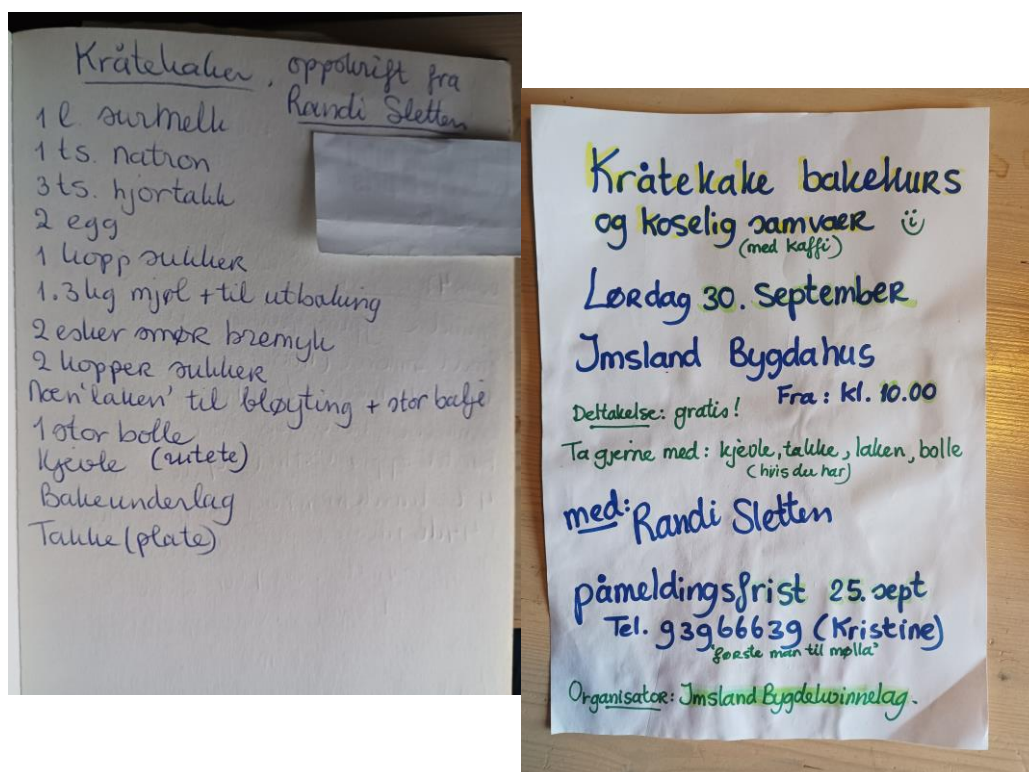 Kråtekaker, oppskrift fra
Randi Sletten
1 l surmelk
1 ts. natron
3 ts. hjortakk
2 egg
1 kopp sukker
1.3 kg mjøl + til utbaking
2 esker smør bremyk
2 kopper sukker
Noen 'laken' til bløyting + stor balje
1 stor bolle
Kjevle (rutete)
Bakeunderlag
Takke (plate)
Kråtekake bakekurs
og koselig samvær
(med kaffi)
Lørdag 30. September
Imsland Bygdahus
Fra: kl. 10.00
Deltakelse: gratis!
Ta gjerne med: kjèvle, takke, laken, bolle
(hvis du har)
med: Randi Sletten
påmeldingsfrist 25. sept
Tel. 93966639 (Kristine)
"første man til mølla"
Organisator: Imsland Bygdekvinnelag.